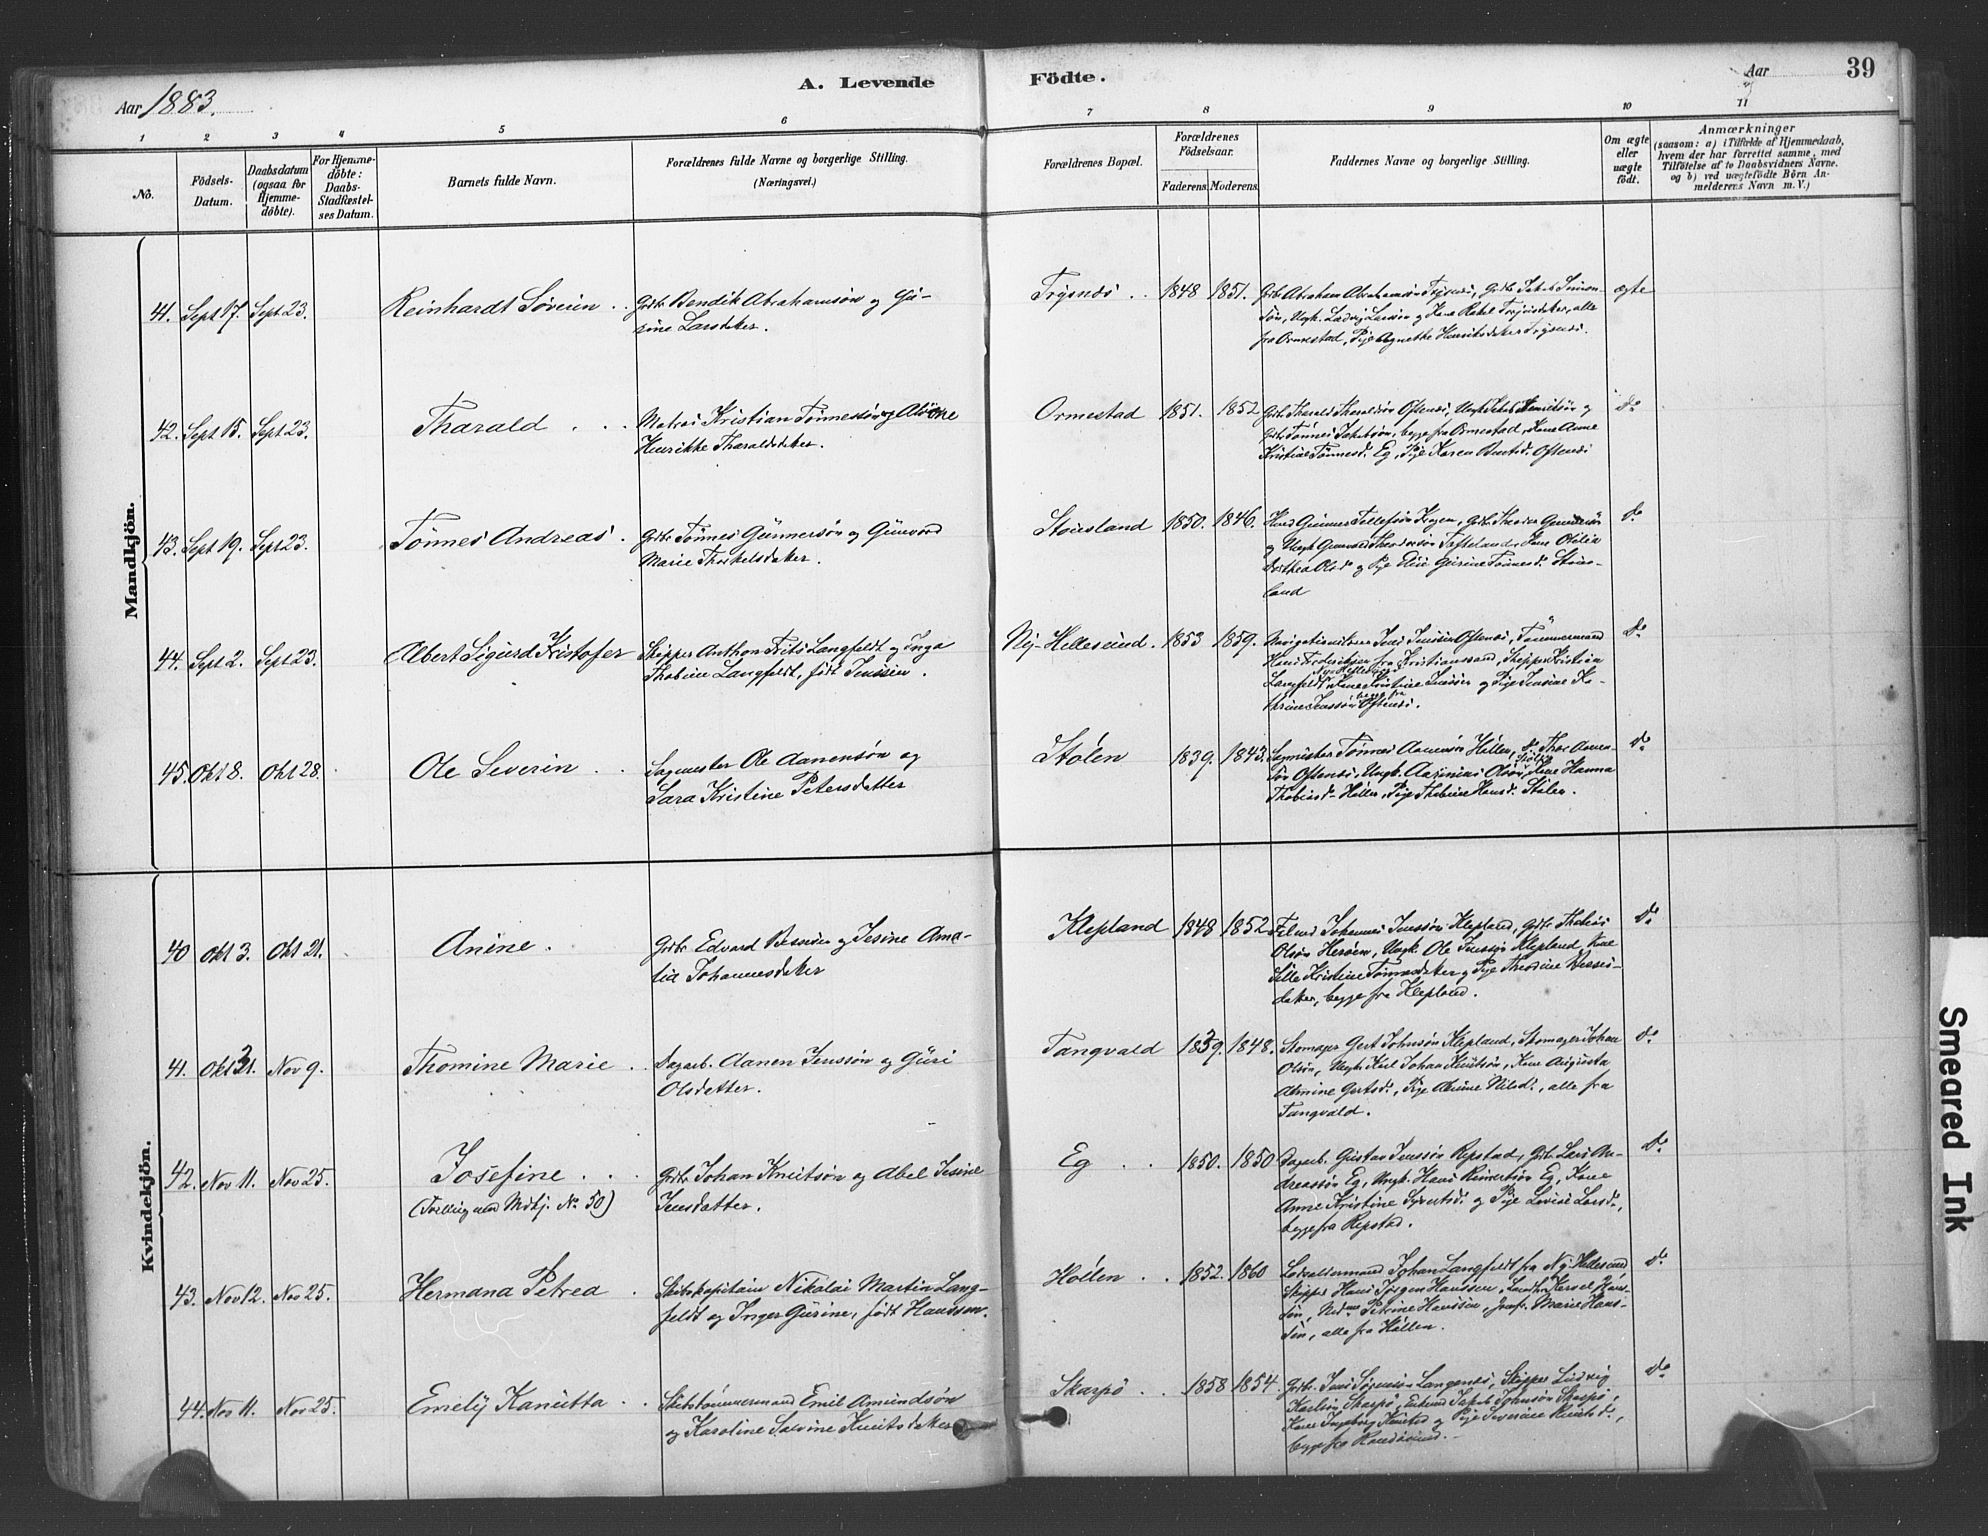 A. Levende Födte.
Aar 1883.
Aar
39
1 2 3 4 5 6 7 8 9 10 11
No.
Födsels-
Datum.
Daabsdatum
(ogsaa for
Hjemme-
döbte).
For Hjemme-
döbte:
Daabs-
Stadfæstel-
ses Datum.
Barnets fulde Navn.
Forældrenes fulde Navne og borgerlige Stilling.
(Næringsvei.)
Forældrenes Bopæl.
Forældrenes
Födselsaar.
Faderens. Moderens.
Faddernes Navne og borgerlige Stilling.
Om ægte
eller
uægte
födt.
Anmærkninger
(saasom: a) i Tilfælde af Hjemmedaab,
hvem der har forrettet samme, med
Tilföielse af to Daabsvidners Navne.
og b) ved uægtefödte Börn An-
melderens Navn m. V.)
Mandkjön.
41. Sept 7. Sept 23. Reinhardt Söverin . . Grdbr Bendik Abrahamsön og Gu-
rine Larsdatter.
Trysnæs . . 1848 1851. Grdbr Abraham Abrahamsön Trysnæs, Grdbr Jakob Simon-
sön, Ungk. Ludvig Larsön og Kone Rakel Torjusdatter, alle
fra Ormestad, Pige Agnethe Henriksdatter Trysnæs.
ægte
42. Sept 15. Sept 23. Tharald . . . Matros Kristian Tönnesön og
Henrikke Tharaldsdatter.
Ormestad 1851. 1852 Grdbr Tharald Tharaldsön Oftenæs, Ungk Jakob Henriksön og
Grdbr Tönnes Jakobsön, begge fra Ormestad, Kone Anne
Kristine Tönnesd. Eg, Pige Karen Oftenæs
do
43. Sept 19. Sept 23. Tönnes Andreas . Grdbr Tönnes Gunnersön og Gunvord
Marie Thorkelsdatter.
Stousland 1850. 1846. Gunner Tellefsön Grdbr Theodor Gundersön
og Ungk Gunvald Theodorsön Tofteland, Kone Otilia
Dorthea Olsd og Pige Gurine Tönnesd. Stous-
land
do
44. Sept 2. Sept 23. Albert Sigurd Kristofer Skipper Anthon Frits Langfeldt og Inga
Thobine Langfeldt, födt Jenssen .
Ny-Hellesund. 1853 1859. Jens Jenssen Oftenæs, Tömmermand
Hans fra Kristianssand, Skipper Kristian
Langfeldt Ny Hellesund, Kone Kristine Jenssen og Pige Jensine Ka-
thrine Jenssön begge fra Oftenæs.
do
45. Okt 8. Okt 28. Ole Severin . . Sagmester Ole Aanensön og
Sara Kristine Petersdatter
Stölen 1839. 1843. Tönnes Aanensön Höllen, do Thor Aanen-
sön Oftenæs, Ungk. Olsön Stölen, Kone Hanna
Thobiasd. Höllen, Pige Thobine Hansd. Stölen.
do
Kvindekjön.
40 Okt 3. Okt 21. Anine . Grdbr Edvard og Jesine Ama-
lia Johannesdatter
Klepland 1848 1852 Johannes Jenssön Klepland, Grdbr Thobias
Olsön Heröen, Ungk. Ole Jenssön Klepland, Kone
Sille Kristine Tönnesdatter og Pige Theodine
datter, begge fra Klepland.
do
41. Okt 21. Nov 9. Thomine Marie . . Dagarb. Aanen Jenssön og Guri
Olsdatter.
Tangvald 1839. 1848. Skomager Gert Johnsön Klepland, Skomager Johan
Olsön, Ungk. Karl Johan Knutsön, Kone Augusta
Almine Gertsd., Pige Nilsd., alle fra
Tangvald.
do
42. Nov 11. Nov 25. Josefine . . .
(Tvilling med Mdkj. No 50)
Grdbr Johan Knutsön og Abel Jesine
Jensdatter.
Eg . . 1850. 1850 Dagarb. Gustav Jenssön Repstad, Grdbr Lars An-
dreassön Eg, Ungk. Hans Reinertsön Eg, Kone
Anne Kristine Syvertsd. og Pige Lovise Larsd.,
begge fra Repstad.
do
43. Nov 12. Nov 25. Hermana Petrea . Skibskapitain Nikolai Martin Lang-
feldt og Inger Gurine, födt Hanssen.
Höllen . . 1852. 1860 Lodsoldermand Johan Langfeldt fra Ny Hellesund,
Skipper Hans Jörgen Hanssen, Hans-
sön, Petrine Hanssen, Jomfr. Marie Hans-
sen, alle fra Höllen.
do
44. Nov 11. Nov 25. Emely Kanutta . Skibstömmermand Emil Amundsön
og Karoline Salvine Knutsdatter
Skarpö . . 1858 1854 Grdbr. Jens Sörensön Langenæs, Skipper Ludvig
Karlsen Skarpö, Jakob Johnsön Skarpö,
Kone Ingeborg Knutsd og Pige Severine Knutsd.,
begge fra Randösund.
do
Smeared Ink